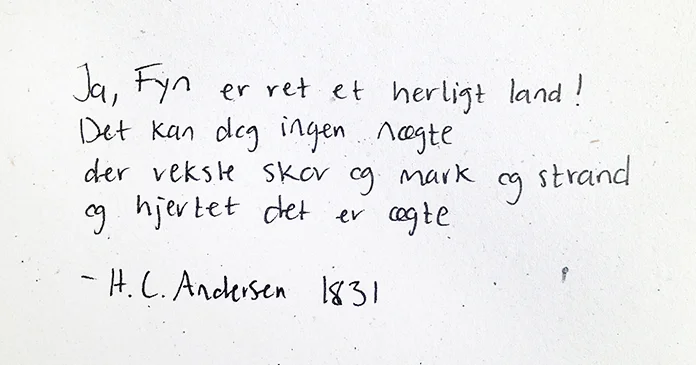 Ja, Fyn er ret et herligt land!
Det kan dog ingen nægte
der veksle skov og mark og strand
og hjertet det er ægte
- H. C. Andersen 1831